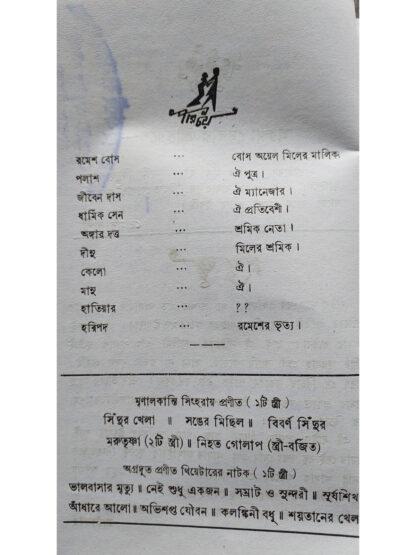 পরিচয়
রমেশ বোস ... বোস অয়েল মিলের মালিক
পলাশ ... ঐ পুত্র।
জীবেন দাস ... ঐ ম্যানেজার।
ধার্মিক সেন ... ঐ প্রতিবেশী।
অঙ্গার দত্ত ... শ্রমিক নেতা।
দীনু ... মিলের শ্রমিক।
কেলো ... ঐ।
মানু ... ঐ।
হাতিয়ার ... ??
হরিপদ ... রমেশের ভৃত্য।
মৃণালকান্তি সিংহরায় প্রণীত ( ১টি স্ত্রী )
সিঁদুর খেলা ॥ সঙের মিছিল ॥ বিবর্ণ সিঁদুর
মরুতৃষ্ণা (২টি স্ত্রী) ॥ নিহত গোলাপ (স্ত্রী-বর্জিত)
অগ্রদূত প্রণীত থিয়েটারের নাটক ( ১টি স্ত্রী )
ভালবাসার মৃত্যু ॥ নেই শুধু একজন ॥ সম্রাট ও সুন্দরী ॥ সূর্যশিখ
আঁধারে আলো ॥ অভিশপ্ত যৌবন ॥ কলঙ্কিনী বধূ ॥ শয়তানের খেল